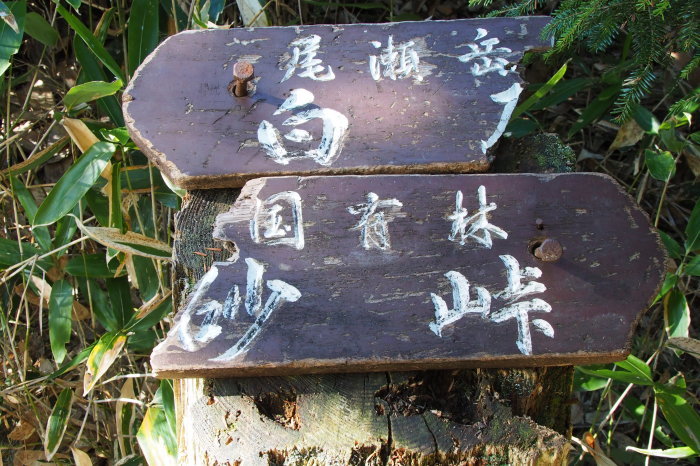 尾瀬岳
白
国有林
砂峠